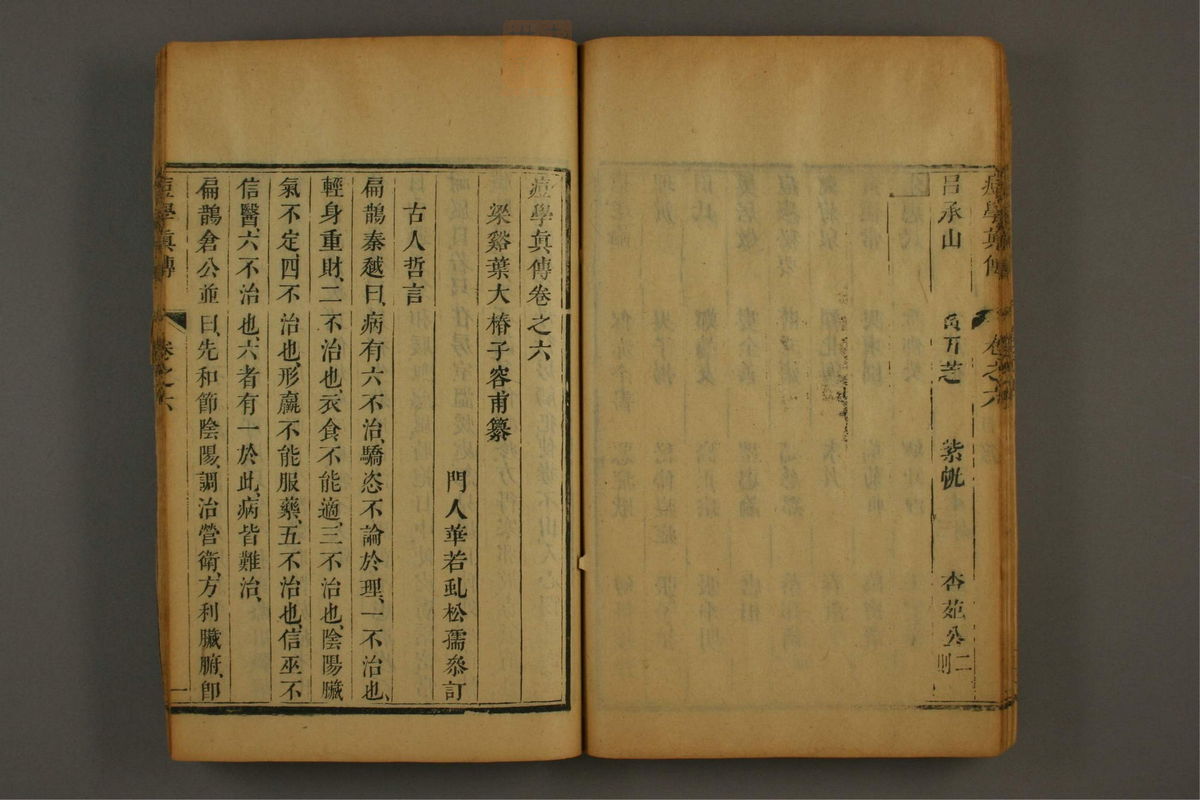 痘學真傳
卷之六
呂承山
芝
紫帨
杏苑公二則
痘學眞傳卷之六
梁谿葉大椿子容甫纂
門人華若虬松孺叅訂
古人哲言
扁鵲秦越曰、病有六不治、驕恣不論於理、一不治也、
輕身重財、二不治也、衣食不能適、三不治也、陰陽臟
氣不定、四不治也、形羸不能服藥、五不治也、信巫不
信醫、六不治也、六者有一於此、病皆難治、
扁鵲倉公並曰、先和節陰陽、調治營衛、方利臟腑、卽
痘學眞傳
卷之六
一